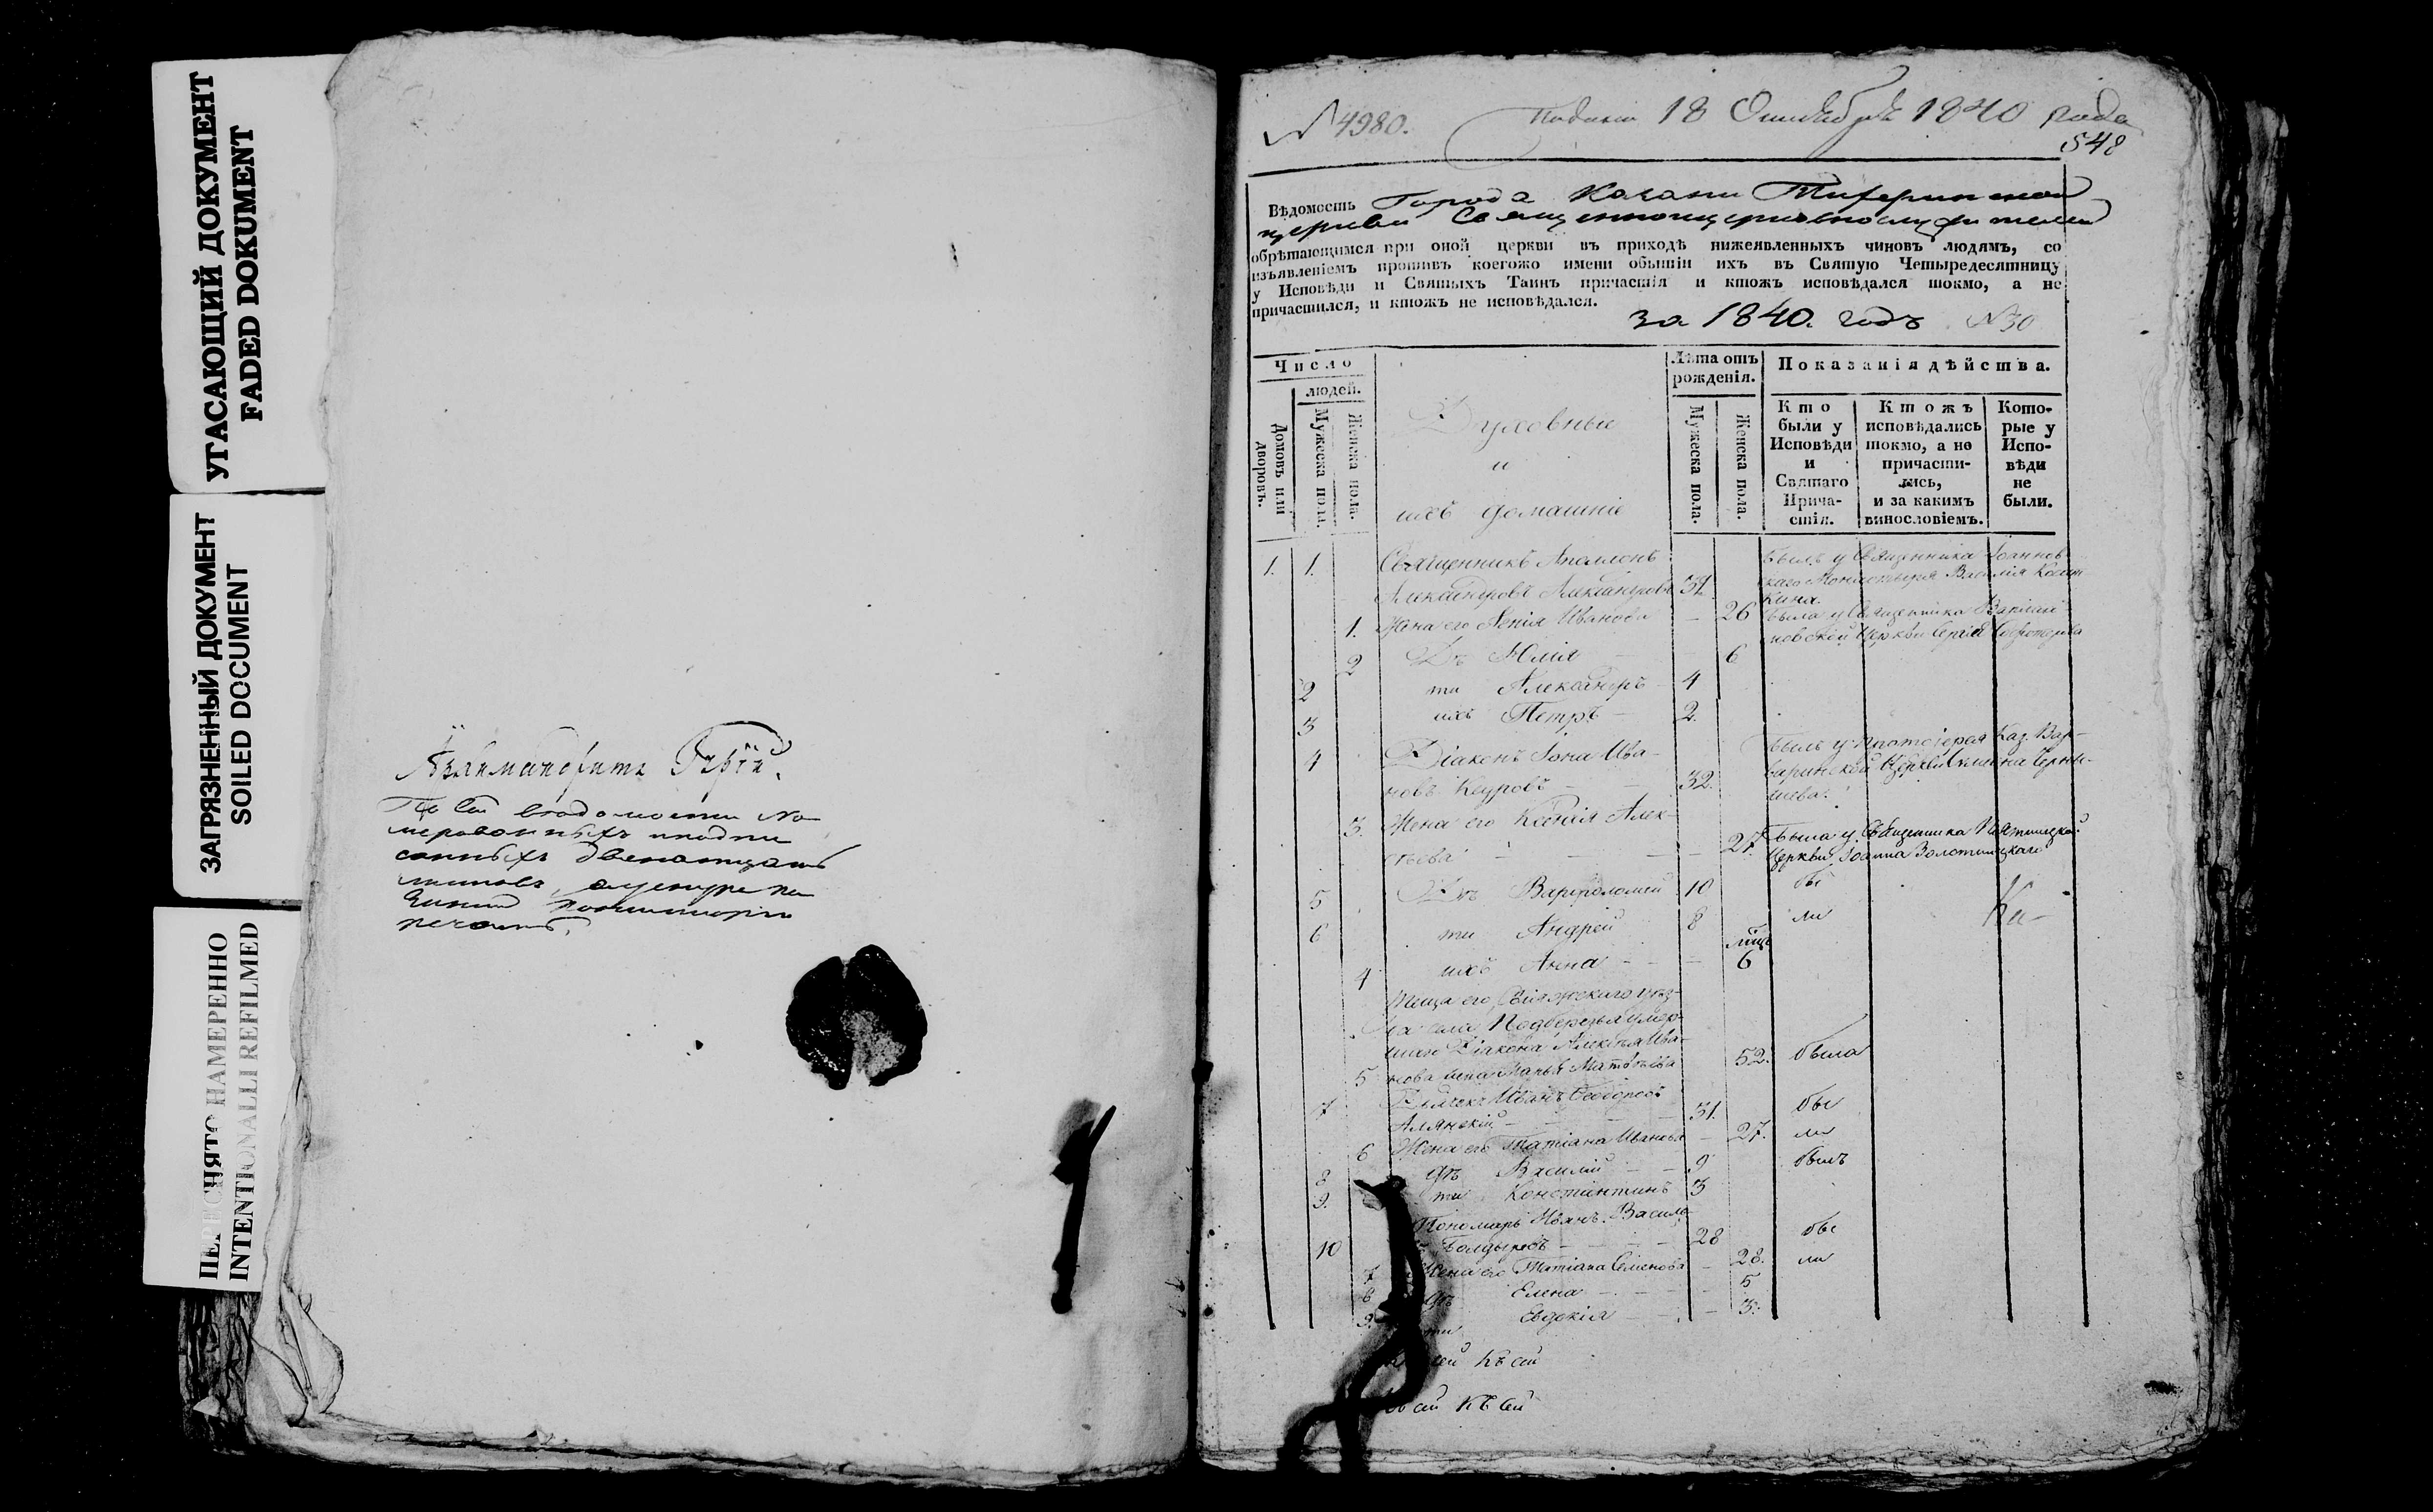 УГАСАЮЩИЙ ДОКУМЕНТ
FADED DOKUMENT
ЗАГРЯЗНЕННЫЙ ДОКУМЕНТ
SOILED DOCUMENT
ПЕРЕСНЯТО НАМЕРЕННО
INTENTIONALLI REFILMED
Архимандритъ Гурій.
По сей ведомости но
мерованныхъ и подпи
санныхъ двенатцать
листовъ
печать.
№ 4980.
18 Октября 1840 года
548
Вѣдомость Города Казани Тихвинской
церкви Священноцерковнослужителей
обрѣтающимся при оной церкви въ приходѣ нижеявленныхъ чиновъ людямъ, со
изъявленіемъ противъ коегожо имени бытіи ихъ въ Святую Четыредесятницу
у Исповѣди и Святыхъ Таинъ причастія и ктожъ исповѣдался токмо, а не
причастился, и ктожъ не исповѣдался.
за 1840. годъ №30
Число
людей.
Домовъ или дворовъ.
Мужеска пола.
Женска пола.
Духовные
и
ихъ домашніе
Лѣта отъ рожденія.
Мужеска пола.
Женска пола.
Показанія дѣйства.
Кто были у Исповѣди и Святаго Причастія.
Ктожъ исповѣдались токмо, а не причастились, и за какимъ винословіемъ.
Которые у Исповѣди не были.
1. 1. Священникъ Аполлонъ
Александровъ Александровъ 31. Былъ у Священника Іоаннов
скаго Монастыря Василія
1. Жена его Ксенія Иванова - 26 Была у Священника Варлаам
новской Церкви Сергія
2 Дѣ Юлія 6
2 ти Александръ 4
3 ихъ Петръ 2.
4 Діаконъ Іона Ива-
новъ Кедровъ 32. Былъ у Протоіерея Каз. Вар-
варинской Церкви
3. Жена его Ксенія Алек-
сѣева 27. Была у Священника Пятницкой
Церкви Іоанна Золотницкаго
5 Дѣ Варфоломей 10 бы
6 ти Андрей 8 ли Ка-
4 ихъ Анна - - 6
Теща его, Свіяжскаго уѣз-
да села Подберезья умер-
шаго Діакона Алексѣя Ива-
5 нова жена Марья Матвѣева 52. была
7 Дьячекъ Иванъ Ѳеодоровъ
Алянскій 31. бы
6 Жена его Татіана Иванова - 27. ли
8 дѣ Василій - - 9 былъ
9. ти Константинъ 3
Пономарь Иванъ Василь
10 Болдыревъ 28 бы
7 Жена его Татіана Семенова - 28. ли
8 дѣ Елена 5
9. ти Евдокія 3.
сей къ сей
къ сей